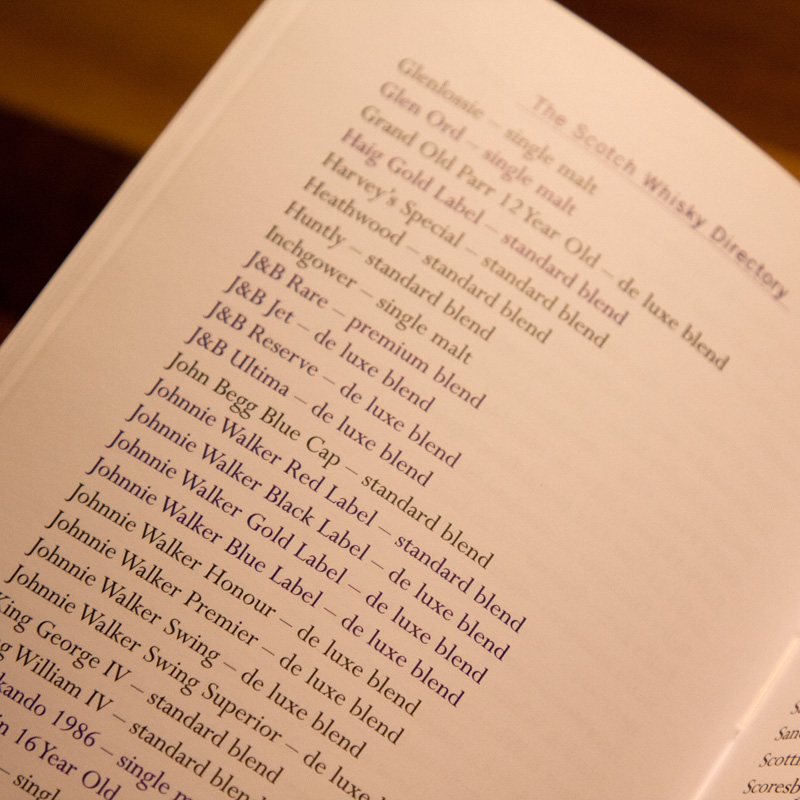 The Scotch Whisky Directory
Glenlossie – single malt
Glen Ord – single malt
Grand Old Parr 12 Year Old – de luxe blend
Haig Gold Label – standard blend
Harvey's Special – standard blend
Heathwood – standard blend
Huntly – standard blend
Inchgower – single malt
J&B Rare – premium blend
J&B Jet – de luxe blend
J&B Reserve – de luxe blend
J&B Ultima – de luxe blend
John Begg Blue Cap – standard blend
Johnnie Walker Red Label – standard blend
Johnnie Walker Black Label – de luxe blend
Johnnie Walker Gold Label – de luxe blend
Johnnie Walker Blue Label – de luxe blend
Johnnie Walker Honour – de luxe blend
Johnnie Walker Premier – de luxe blend
Johnnie Walker Swing – de luxe blend
Johnnie Walker Swing Superior – de luxe
King George IV – standard blend
William IV – standard blend
kando 1986 – single
16 Year Old
– singl
San
Scotti
Scoresb